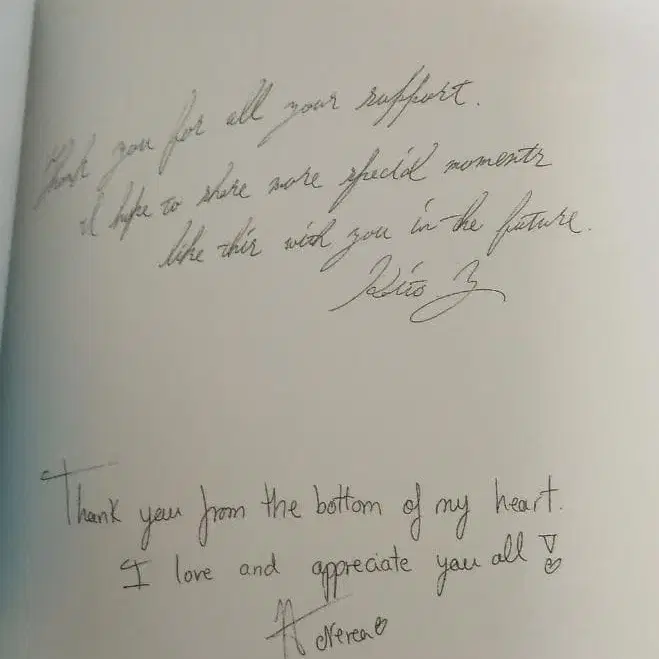 Thank you for all your support.
I hope to share more special moments
like this with you in the future.
Thank you from the bottom of my heart.
I love and appreciate you all
Nerea